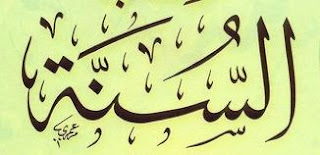 السُّنَّة